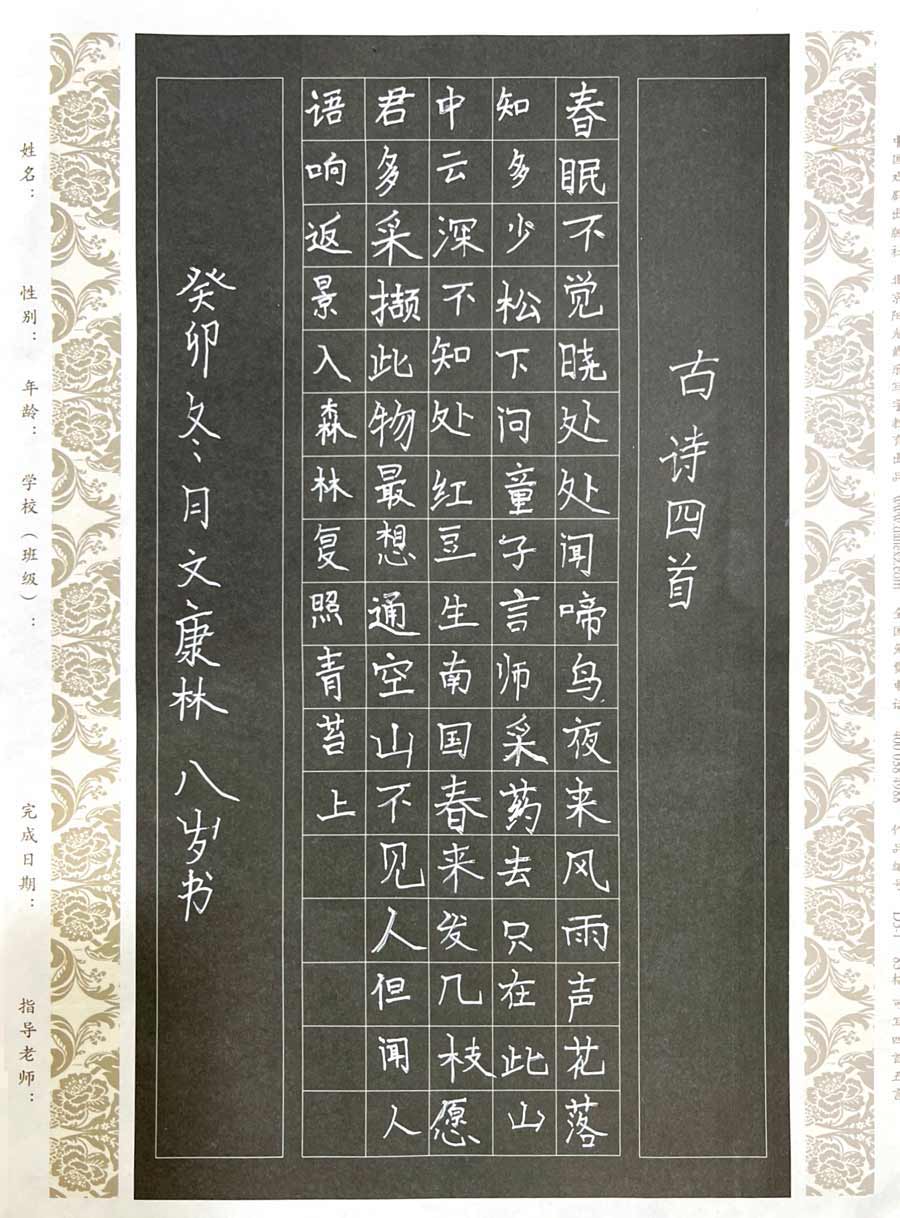 古诗四首
春眠不觉晓处处闻啼鸟夜来风雨声花落
知多少松下问童子言师采药去只在此山
中云深不知处红豆生南国春来发几枝愿
君多采撷此物最想通空山不见人但闻人
语响返景入森林复照青苔上
癸卯冬月文康林 八岁书
姓名： 性别： 年龄： 学校（班级）： 完成日期： 指导老师：